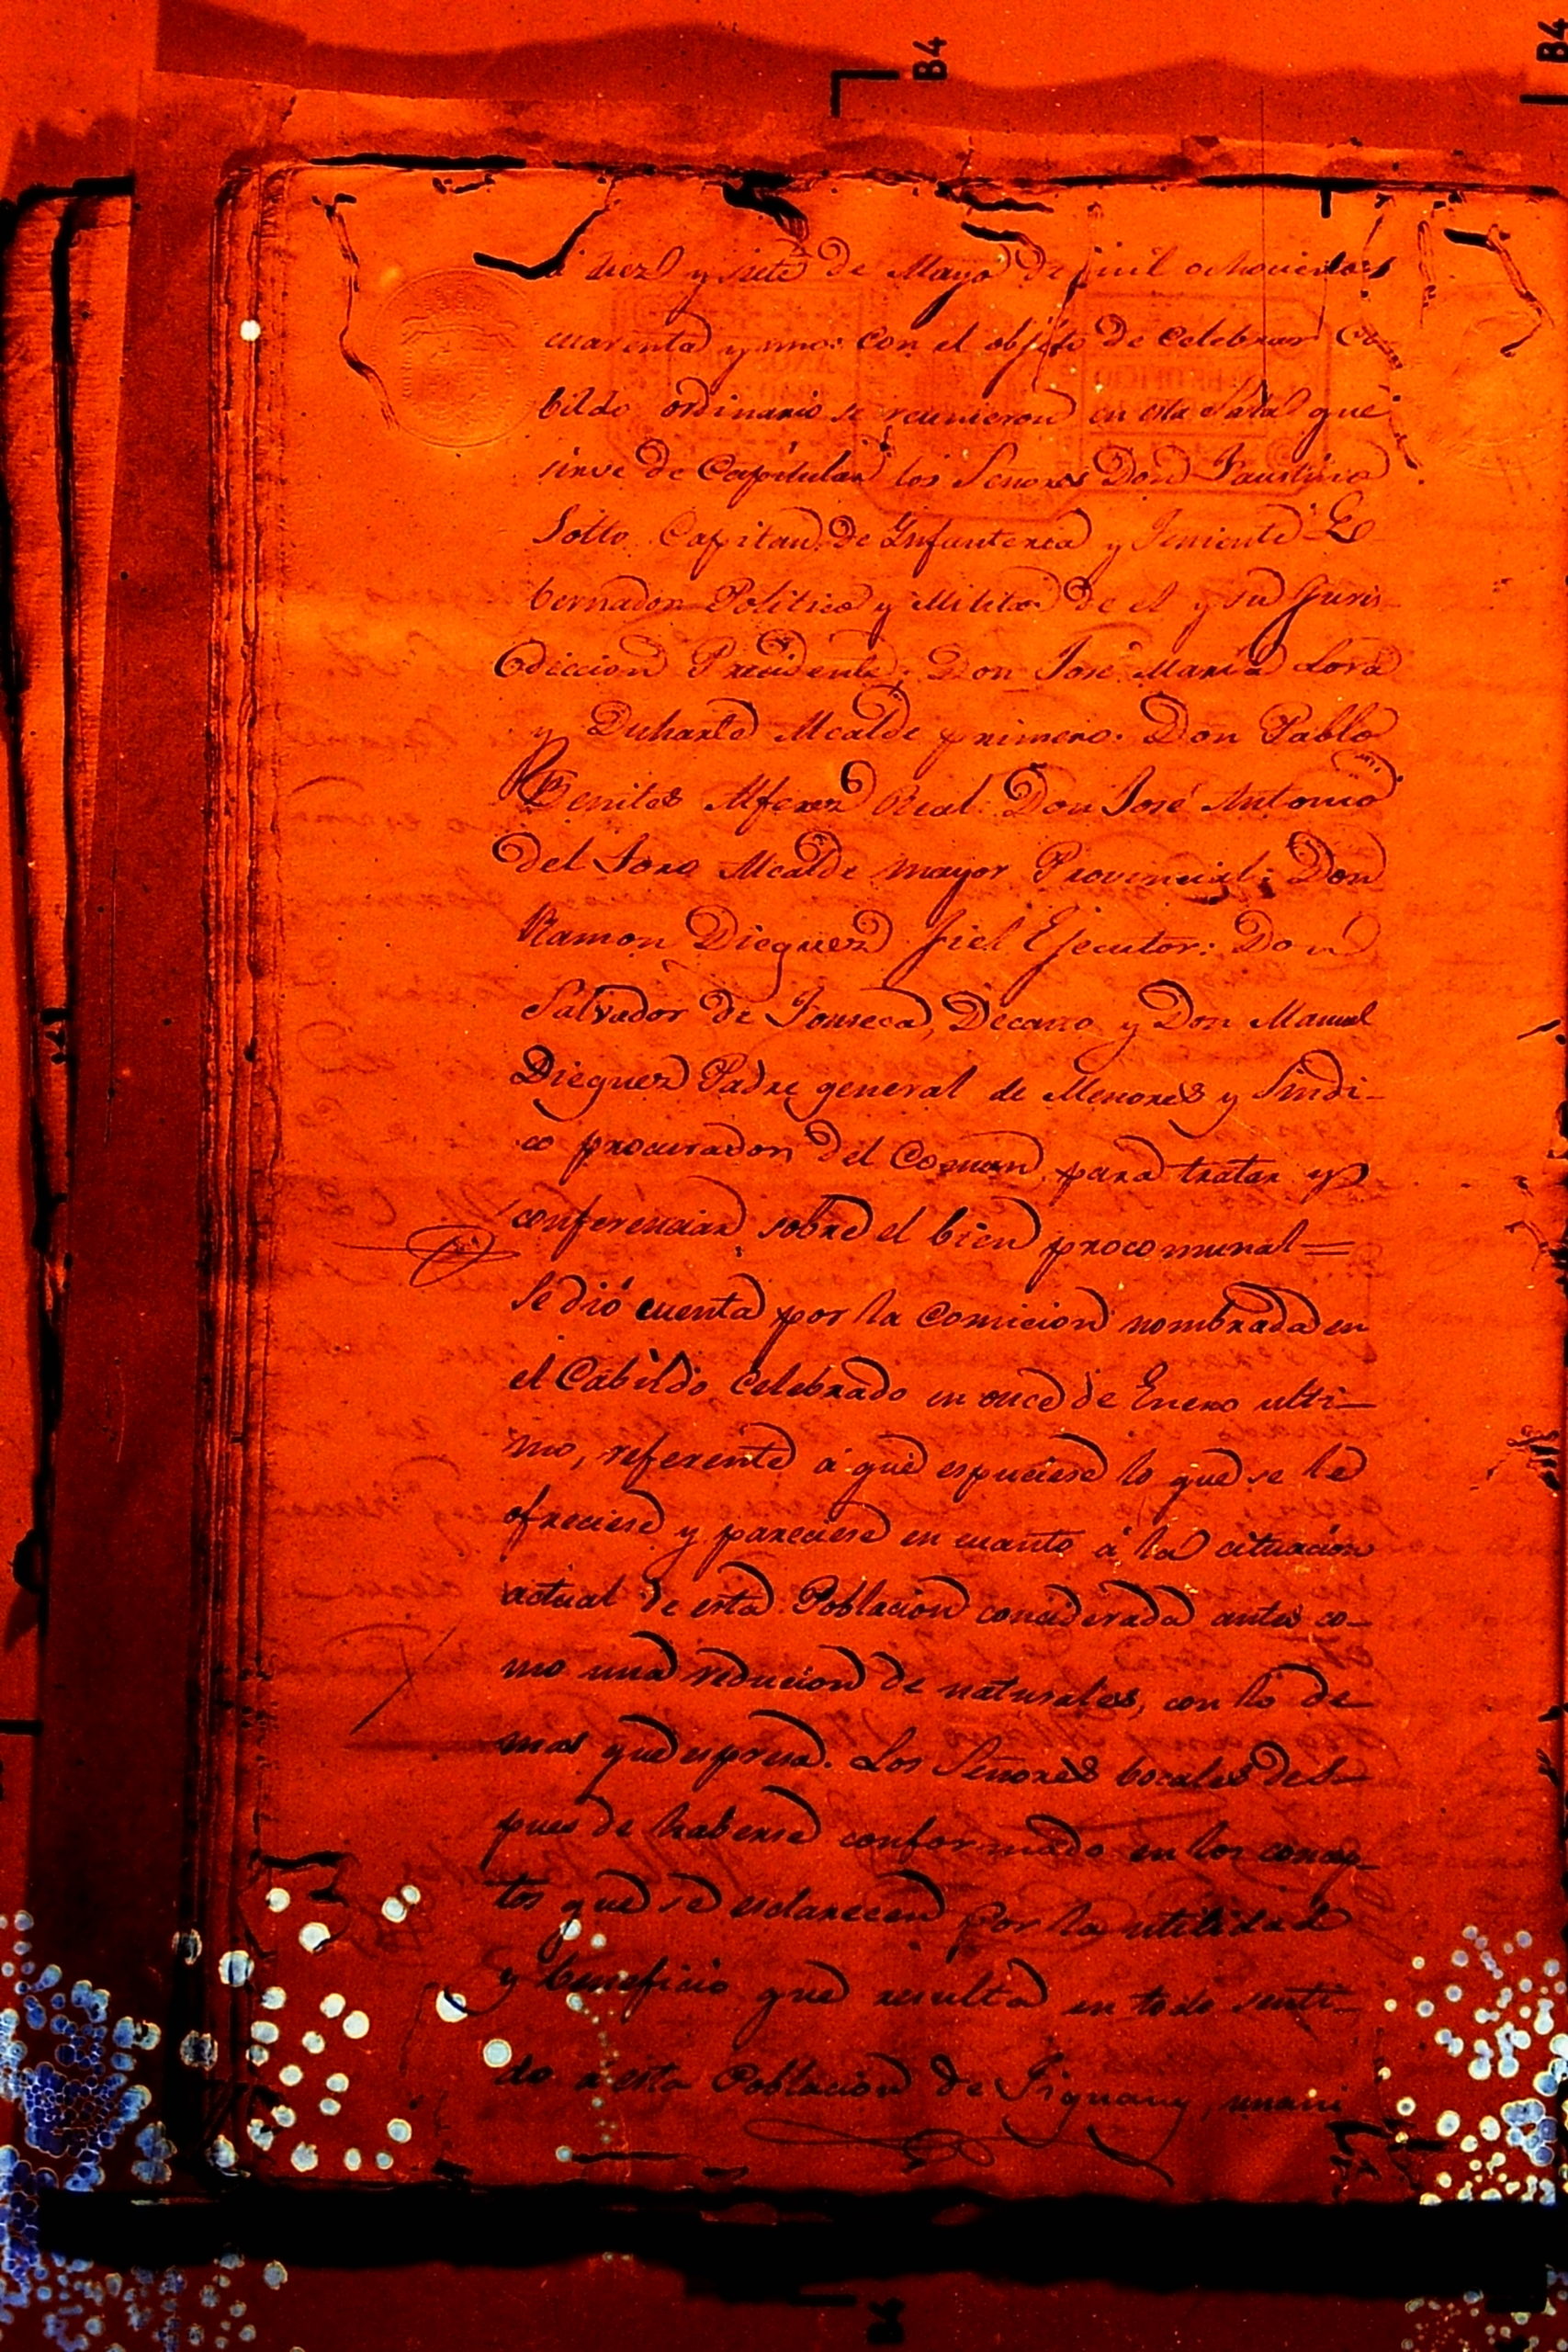 B4
B4
á diez y siete de Mayo de mil ochocientos
cuarenta y uno: con el objeto de celebrar Ca
bildo ordinario se reunieron en esta Sala que
sirve de Capitular los Señores Don Faustino
Sotto Capitan de Infanteria y Teniente Go
bernador Politico y Militar de el y su Juris-
diccion Precidente: Don José Maria Lora
y Duharte Alcalde primero: Don Pablo
Benites Alferez Real: Don José Antonio
del Toro Alcalde mayor Provincial: Don
Ramon Dieguez fiel Ejecutor: Don
Salvador de Fonseca, Decano y Don Manuel
Dieguez Padre general de Menores y Sindi-
co procurador del Comun para tratar y
conferenciar sobre el bien procomunal=
Se dió cuenta por la Comicion nombrada en
el Cabildo celebrado en once de Enero ulti-
mo, referente á que espuciese lo que se le
ofreciese y pareciese en cuanto á la cituacion
actual de esta Poblacion conciderada antes co-
mo una reducion de naturales, con lo de
mas que espresa. Los Señores bocales des-
pues de haberse conformado en los concep-
tos que se esclarecen por la utilidad
y beneficio que resulta en todo senti-
do a esta Poblacion de Jiguany, unani